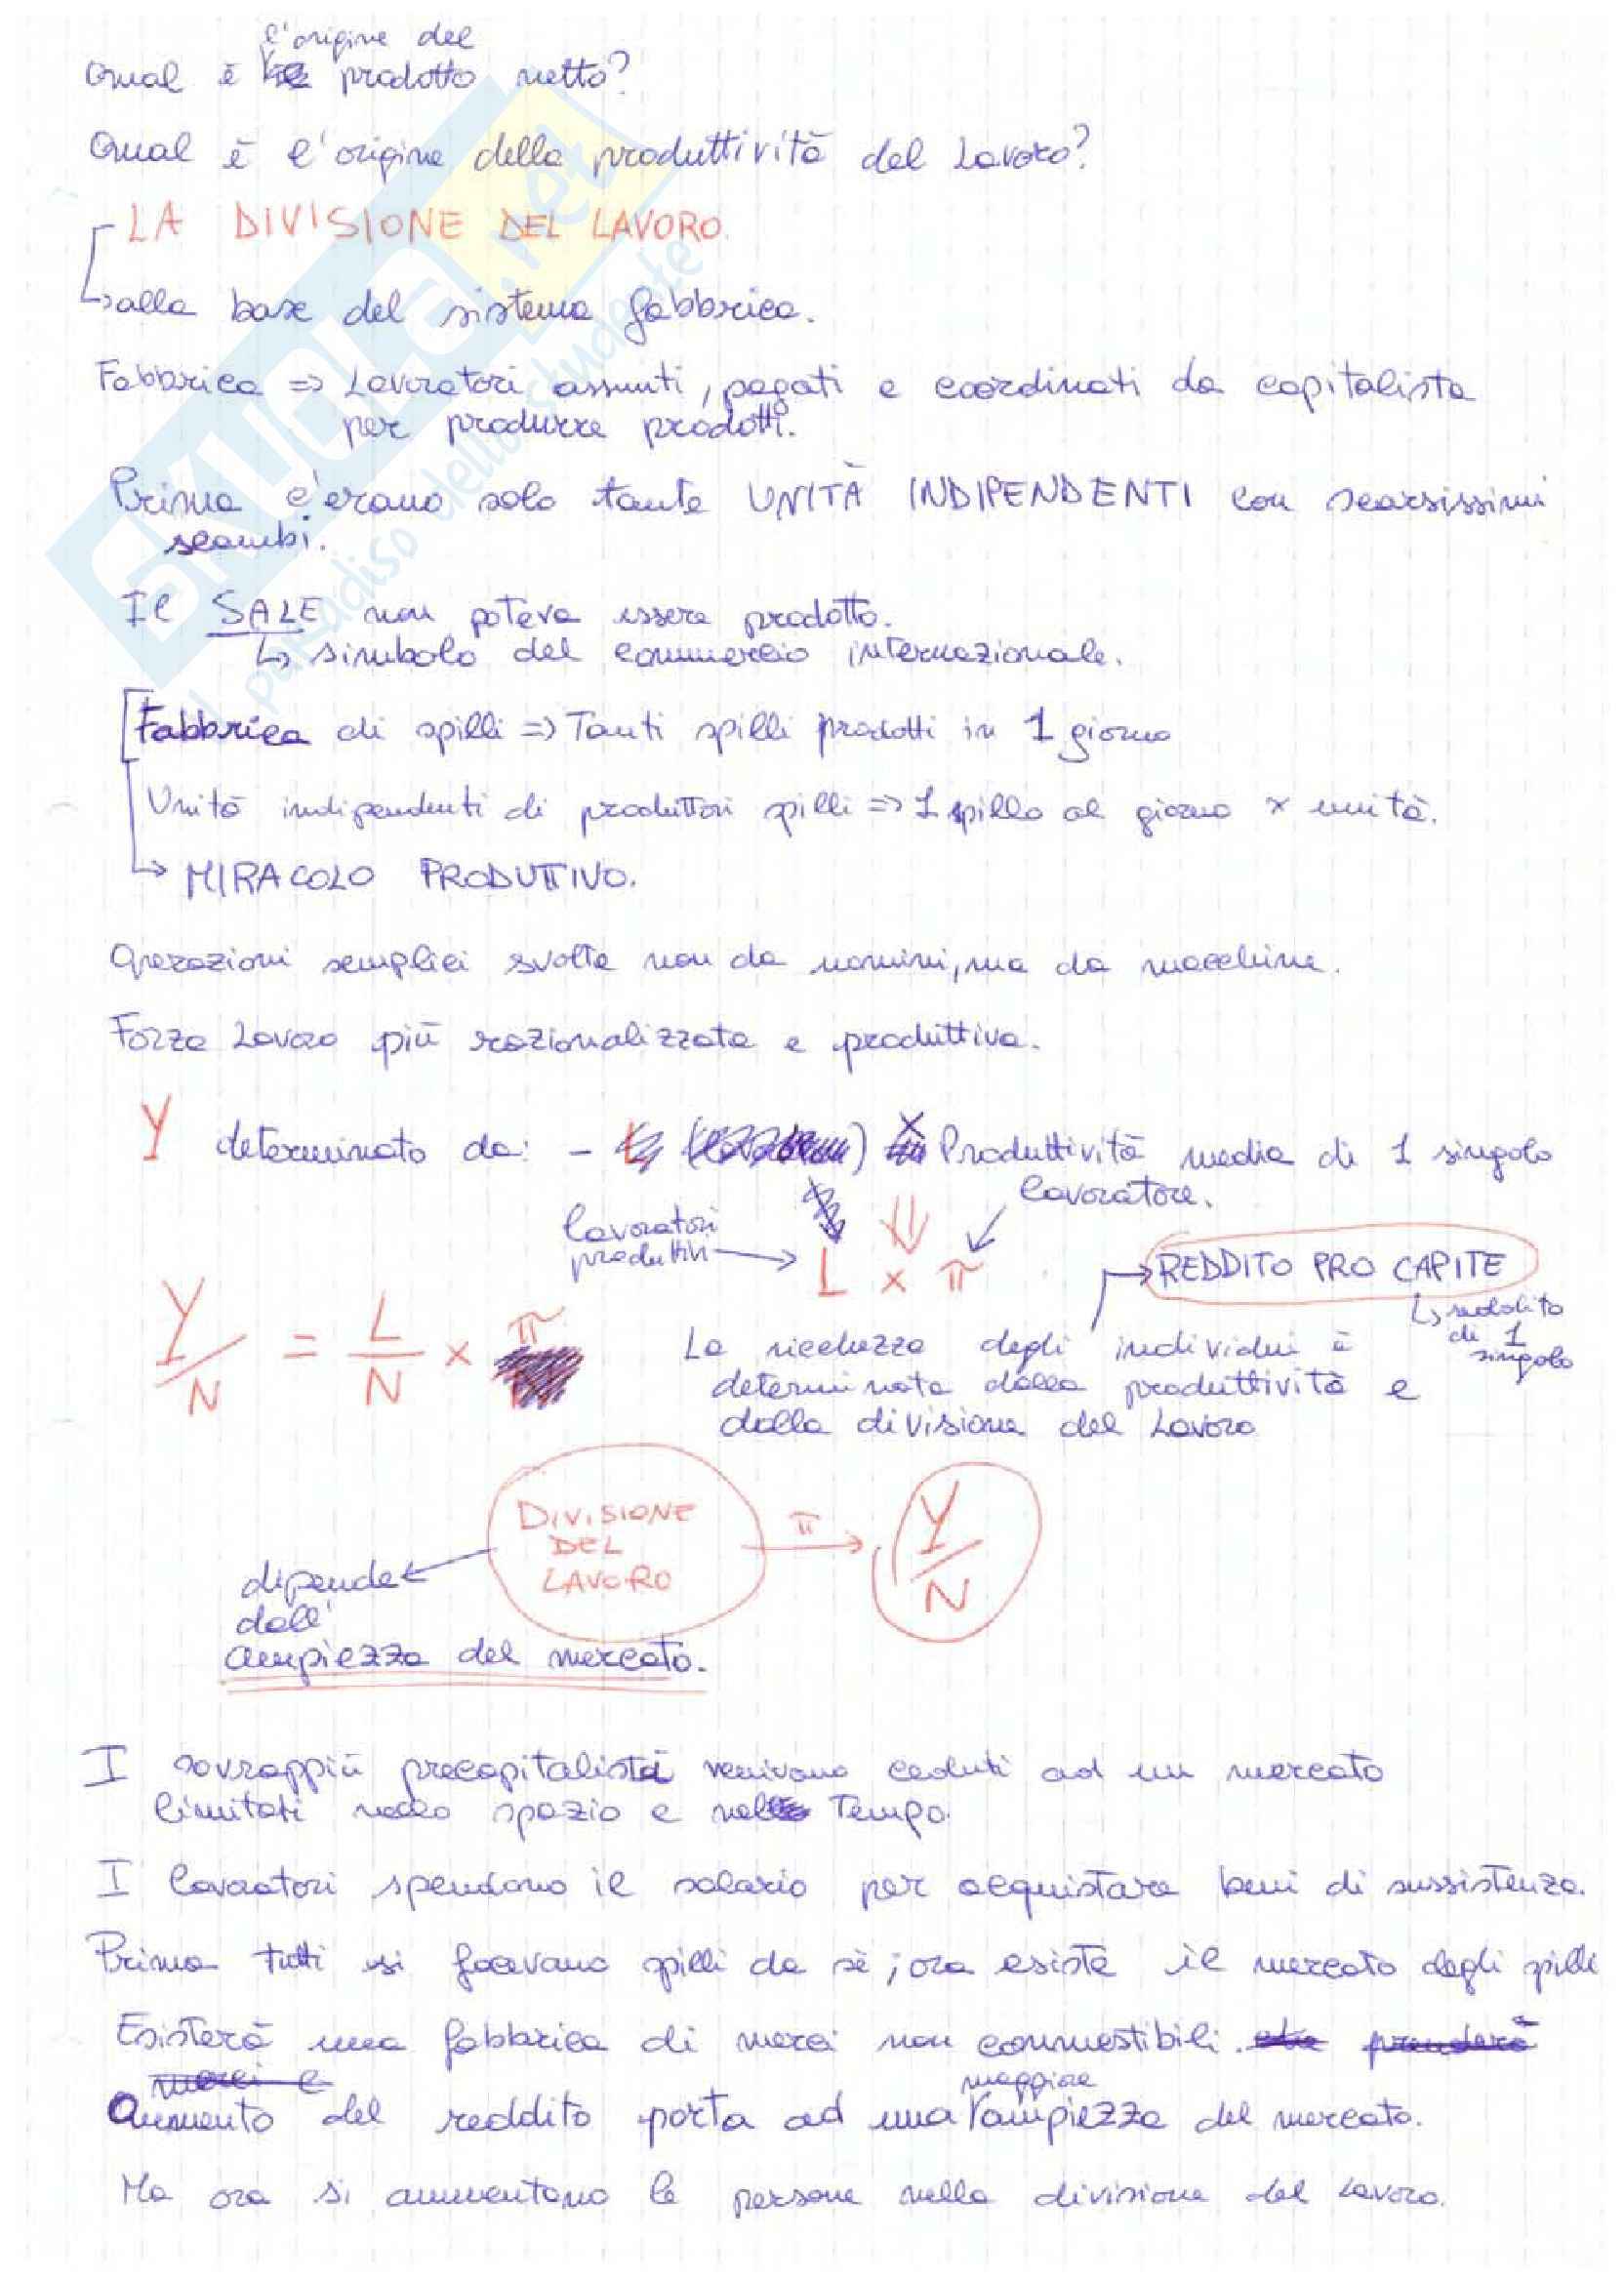 l'origine del
Qual è prodotto netto?
Qual è l'origine della produttività del lavoro?
LA DIVISIONE DEL LAVORO.
↳ alla base del sistema fabbrica.
Fabbrica => Lavoratori assunti, pagati e coordinati da capitalista
per produrre prodotti.
Prima c'erano solo tante UNITÀ INDIPENDENTI con scarsissimi
scambi.
Il SALE non poteva essere prodotto.
↳ simbolo del commercio internazionale.
Fabbrica di spilli => Tanti spilli prodotti in 1 giorno
Unità indipendenti di produttori spilli => 1 spillo al giorno x unità.
↳ MIRACOLO PRODUTTIVO.
Operazioni semplici svolte non da uomini, ma da macchine.
Forza Lavoro più razionalizzata e produttiva.
Y determinato da: - x Produttività media di 1 singolo
lavoratore.
lavoratori
produttivi → L x π
→ REDDITO PRO CAPITE
↳ reddito
di 1
singolo
Y/N = L/N x π
La ricchezza degli individui è
determinata dalla produttività e
dalla divisione del lavoro
DIVISIONE
DEL
LAVORO
π → Y/N
dipende
dall'
ampiezza del mercato.
I sovrappiù precapitalisti venivano ceduti ad un mercato
limitati nello spazio e nel Tempo.
I lavoratori spendono il salario per acquistare beni di sussistenza.
Prima tutti si facevano spilli da sè; ora esiste il mercato degli spilli
Esisterà una fabbrica di merci non commestibili. prenderà
merci e
Aumento del reddito porta ad una maggiore ampiezza del mercato.
Ma ora si aumentano le persone nella divisione del lavoro.
SKUOLA.net
il paradiso dello studente